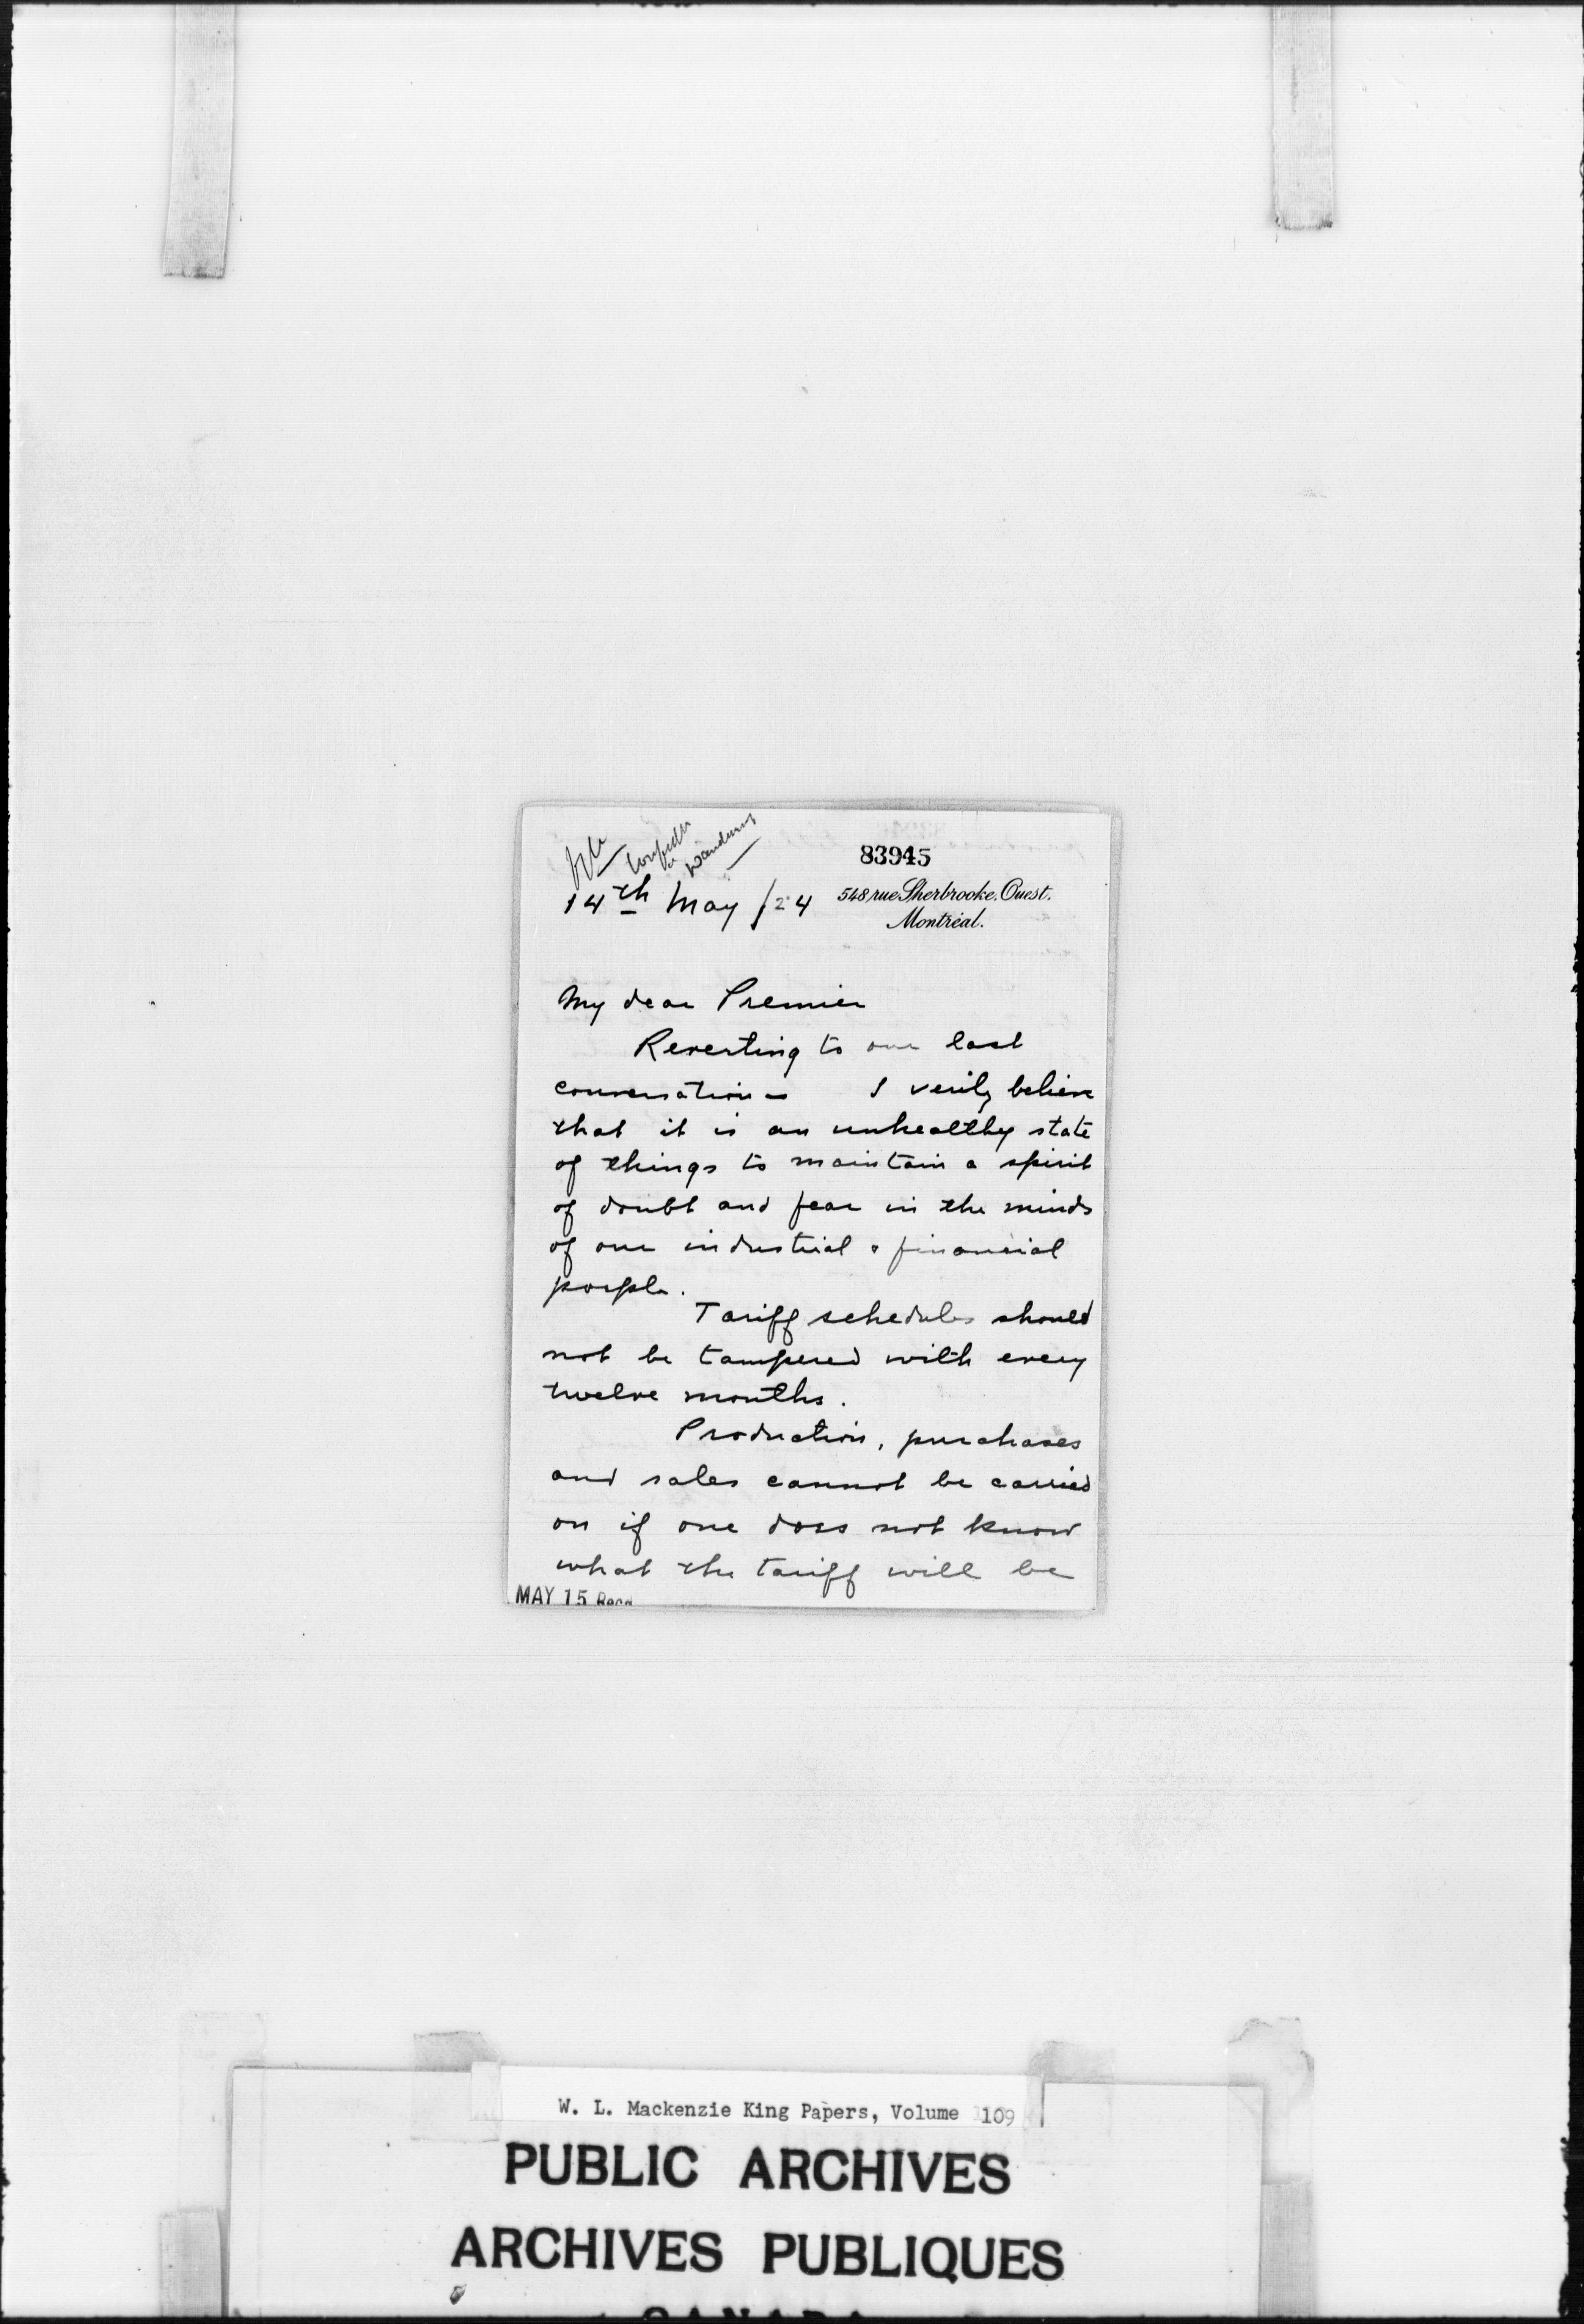 83945
14th May /24
548 rue Sherbrooke. Ouest.
Montréal.
My dear Premier
Reverting to our last
conversation - I verily believe
that it is an unhealthy state
of things to maintain a spirit
of doubt and fear in the minds
of our industrial & financial
people.
Tariff schedules should
not be tampered with every
twelve months.
Production, purchases
and sales cannot be carried
on if one does not know
what the tariff will be
MAY 15 Recd
W. L. Mackenzie King Papers, Volume 109
PUBLIC ARCHIVES
ARCHIVES PUBLIQUES
CANADA